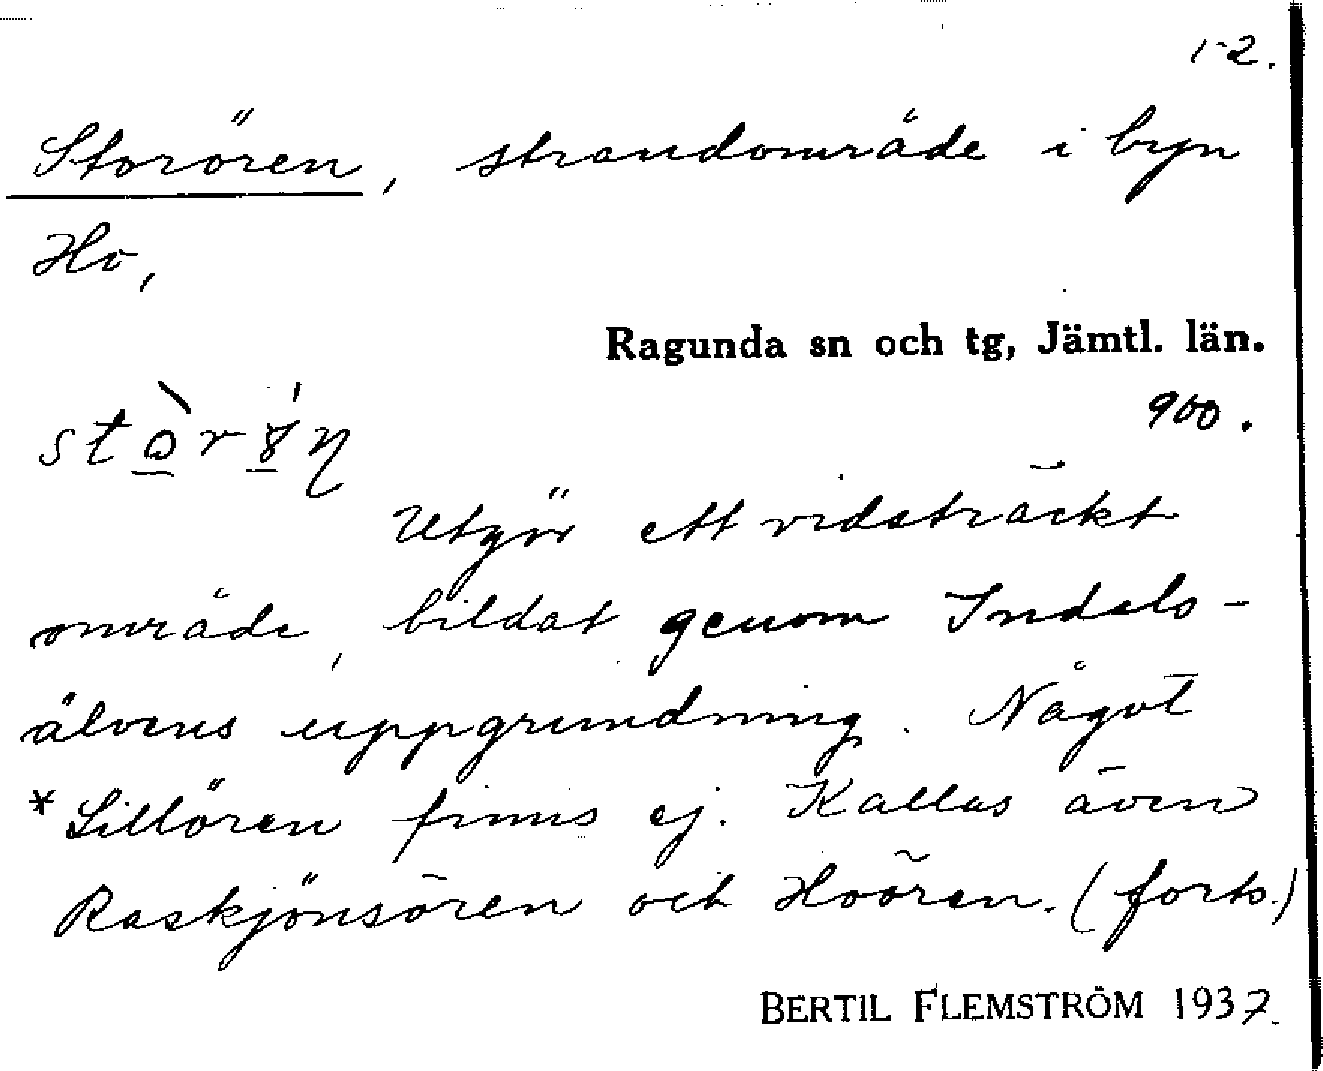 1-2.
Storören, strandområde i byn
Ho,
Ragunda sn och tg, Jämtl. län.
900.
Utgör ett vidsträckt
område, bildat genom Indals-
älvens uppgrundning. Något
*Lillören finnes ej. Kallas även
Raskjönsören och Hoören. (forts.)
BERTIL FLEMSTRÖM 1937.